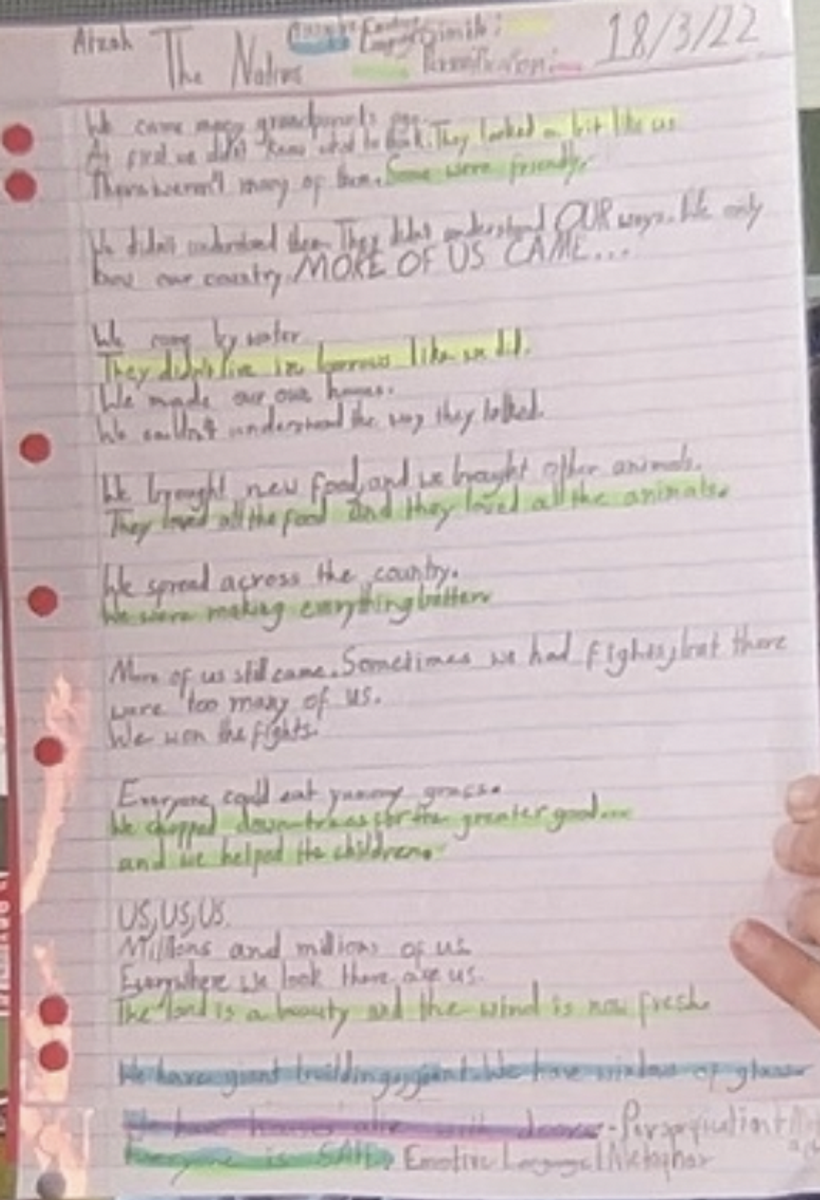 The Natives 18/3/22
Simile:
Personification:
We came many grandparents ago.
At first we didn't know what to think. They looked a bit like us
There weren't many of them. Some were friendly.
We didn't understand them. They didn't understand OUR ways. We only
know our country. MORE OF US CAME...
We came by water
They didn't live in burrows like we did.
We made our own houses.
We couldn't understand the way they talked.
We brought new food, and we brought other animals.
They loved all the food and they loved all the animals.
We spread across the country.
We were making everything better
More of us still came. Sometimes we had fights, but there
were too many of us.
We won the fights.
Everyone could eat yummy grass.
We chopped down trees for the greater good...
and we helped the children.
US, US, US.
Millions and millions of us.
Everywhere we look there are us.
The land is a beauty and the wind is now fresh
We have giant buildings, giant. We have windows of glass
We have houses with
Everyone is Emotive Language/Metaphor